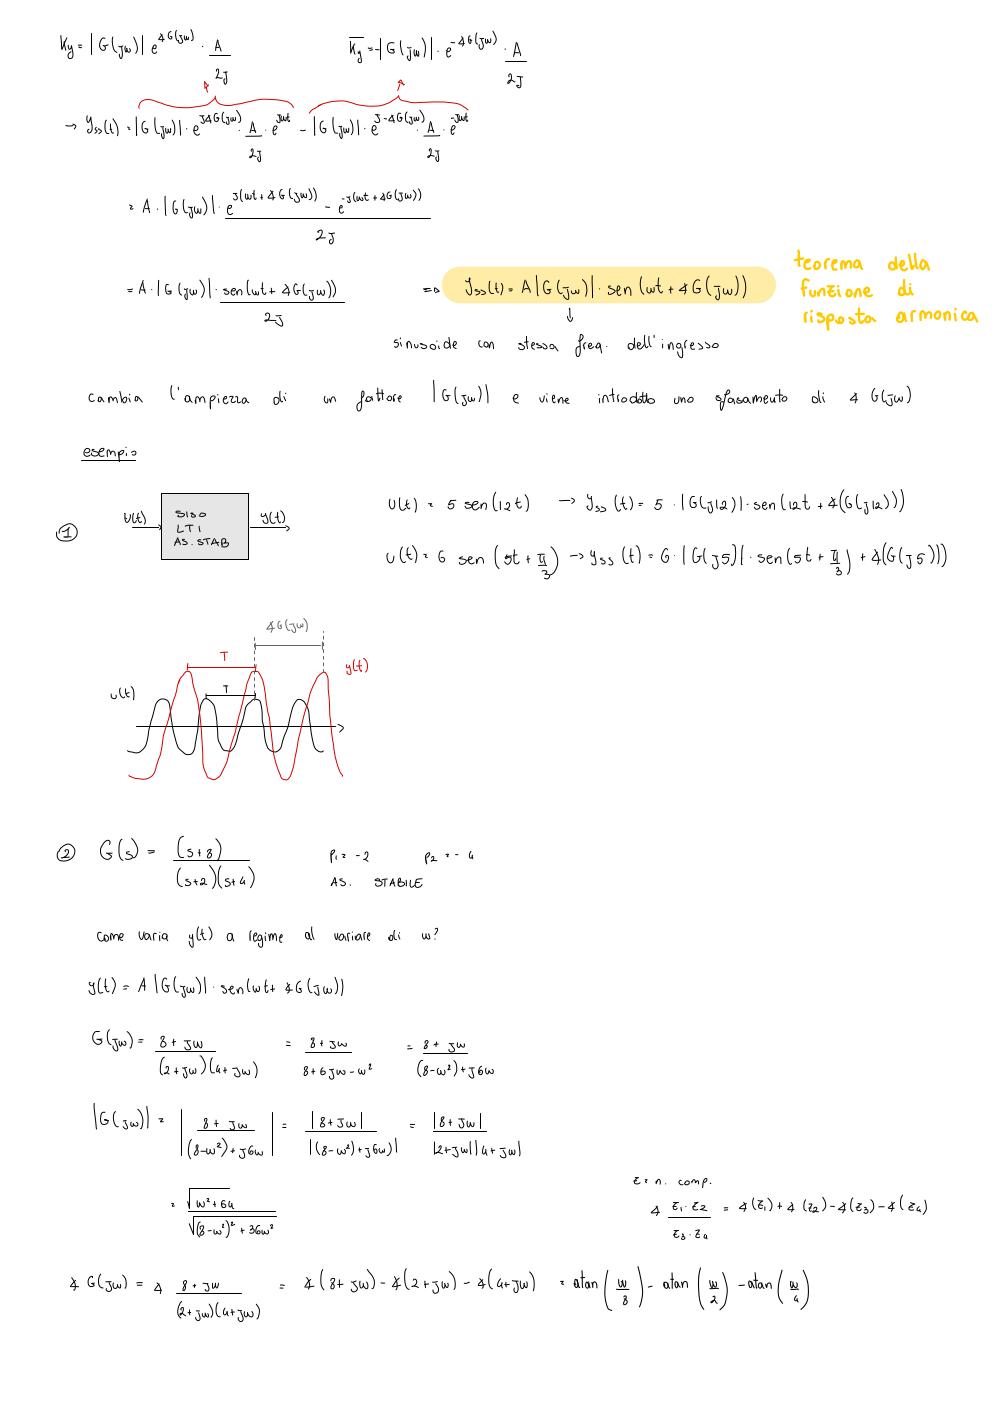 Ky = |G(jw)| e^{∡G(jw)} · A/2J    K̅y = -|G(jw)| · e^{-∡G(jw)} · A/2J
→ yss(t) = |G(jw)| · e^{J∡G(jw)} · A/2J · e^{jwt} - |G(jw)| · e^{J-∡G(jw)} · A/2J · e^{-jwt}
= A · |G(jw)| · (e^{J(wt + ∡G(jw))} - e^{-J(wt + ∡G(jw))})/2J
= A · |G(jw)| · sen(wt + ∡G(jw))/2J    ⇒ yss(t) = A|G(jw)| · sen(wt + ∡G(jw))
teorema della
funzione di
risposta armonica
↓
sinusoide con stessa freq. dell'ingresso
cambia l'ampiezza di un fattore |G(jw)| e viene introdotto uno sfasamento di ∡ G(jw)
esempio
① U(t) → SISO LTI AS.STAB → y(t)
U(t) = 5 sen(12t) → yss(t) = 5 · |G(j12)| · sen(12t + ∡(G(j12)))
U(t) = 6 sen(5t + π/3) → yss(t) = 6 · |G(j5)| · sen(5t + π/3) + ∡(G(j5)))
∡G(jw)
T
y(t)
u(t)
T
② G(s) = (s+8)/(s+2)(s+4)    p1 = -2    p2 = -4
AS. STABILE
come varia y(t) a regime al variare di w?
y(t) = A |G(jw)| · sen(wt + ∡G(jw))
G(jw) = 8 + jw/(2+jw)(4+jw) = 8 + jw/8+6jw-w² = 8 + jw/(8-w²)+j6w
|G(jw)| = |8 + jw/(8-w²)+j6w| = |8+jw|/|(8-w²)+j6w)| = |8+jw|/|2+jw||4+jw|
= √w²+64/√(8-w²)²+36w²
z = n. comp.
∡ z1·z2/z3·z4 = ∡(z1) + ∡(z2) - ∡(z3) - ∡(z4)
∡ G(jw) = ∡ 8+jw/(2+jw)(4+jw) = ∡(8+jw) - ∡(2+jw) - ∡(4+jw) = atan(w/8) - atan(w/2) - atan(w/4)